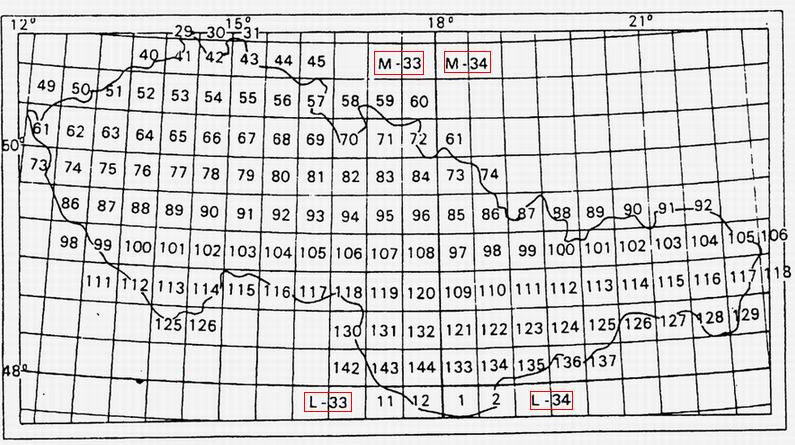 12° 15° 18° 21°
29 30 31
40 41 42 43 44 45 M-33 M-34
49 50 51 52 53 54 55 56 57 58 59 60
50° 61 62 63 64 65 66 67 68 69 70 71 72 61
73 74 75 76 77 78 79 80 81 82 83 84 73 74
86 87 88 89 90 91 92 93 94 95 96 85 86 87 88 89 90 91 92
98 99 100 101 102 103 104 105 106 107 108 97 98 99 100 101 102 103 104 105 106
111 112 113 114 115 116 117 118 119 120 109 110 111 112 113 114 115 116 117 118
125 126 130 131 132 121 122 123 124 125 126 127 128 129
48° 142 143 144 133 134 135 136 137
L-33 11 12 1 2 L-34